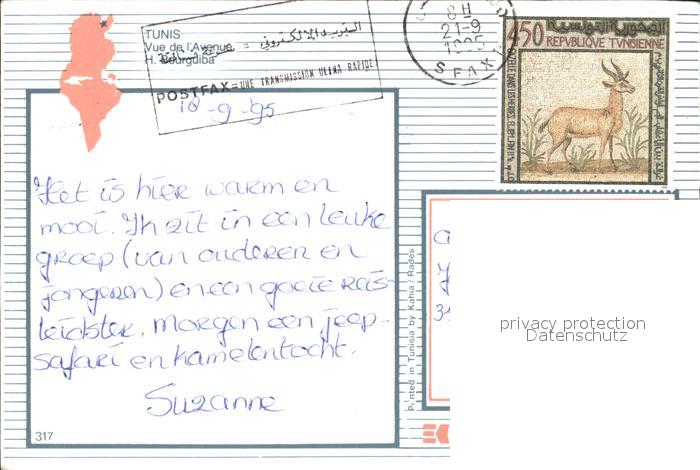 TUNIS
Vue de l'Avenue
H. Bourguiba
البريد الالكتروني =
POSTFAX = UNE TRANSMISSION ULTRA RAPIDE
8 H
21-9
1995
SFAX
450 REPUBLIQUE TUNISIENNE
الجمهورية التونسية
18-9-95
Het is hier warm en
mooi. Ik zit in een leuke
groep (van ouderen en
jongeren) en een goeie reis-
leidster. Morgen een jeep-
safari en kamelentocht.
Suzanne
317
Printed in Tunisia by Kahia / Rades
privacy protection
Datenschutz